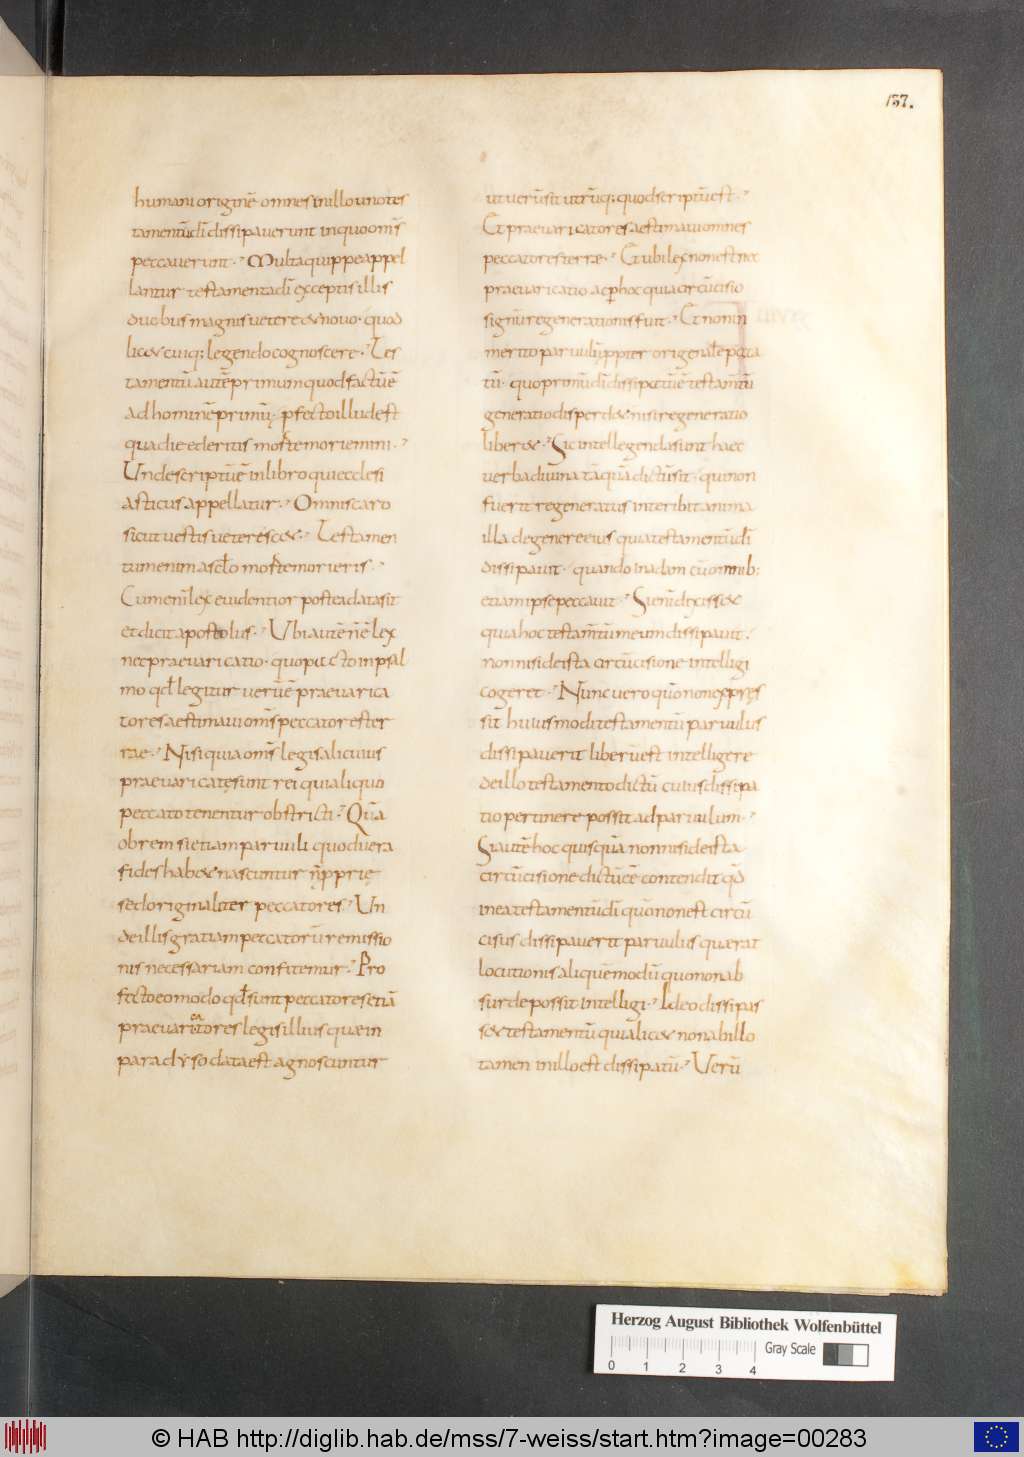 137.
humani originē omnes in illo uno tes
tamentū dī dissipauerunt in quo om̄s
peccauerunt. Multa quippe appel
lantur testamenta dī exceptis illis
duobus magnis uetere & nouo. quod
lic& cuiq; legendo cognoscere. Tes
tamentū autē primum quod factū ē
ad hominē primū, ꝓfecto illud est
qua die ederitis morte moriemini.
Unde scriptū ē in libro qui ecclesi
asticus appellatur. Omnis caro
sicut uestis ueteresc&. Testamen
tum enim a sclo morte morieris.
Cum enī lex euidentior postea data sit
et dicit apostolus. Ubi autē n̄ ē lex
nec praeuaricatio. quo pacto in psal
mo qd legitur uerū ē praeuarica
tores aestimaui om̄s peccatores ter
rae. Nisi quia om̄s legis alicuius
praeuaricatę sunt rei qui aliquo
peccato tenentur obstricti. Quā
obrem si etiam paruuli quod uera
fides hab& nascuntur n̄ ꝓprię
sed originaliter peccatores. Un
de illis gratiam peccatorū remissio
nis necessariam confitemur. Pro
fecto eo modo qd sunt peccatores etiā
praeuaricatores legis illius quae in
paradyso data est agnoscuntur
ut uerū sit utrūq; quod scriptū est.
Et praeuaricatores aestimaui omnes
peccatores terræ. Et ubi lex non est nec
praeuaricatio ac ꝑ hoc quia circūcisio
signū regenerationis fuit. Et non in
merito paruulū ꝓpter origenale peccā
tū. quo primū dī dissipatū ē testam̄tū
generatio disperd& nisi regeneratio
liber&. Sic intellegenda sunt haec
uerba diuina tāquā dictū sit. qui non
fuerit regeneratus interibit anima
illa de genere eius quia testamentū dī
dissipauit. quando in adam cū omnib:
etiam ipse peccauit. Si enī dixiss&
quia hoc testam̄tū meum dissipauit.
non nisi de ista circūcisione intelligi
cogeret. Nunc uero quō non expręs
sit huiusmodi testamentū paruulus
dissipauerit liberū est intelligere
de illo testamento dictū cuius dissipa
tio pertinere possit ad paruulum.
Si autē hoc quisquā non nisi de ista
circūcisione dictū ēē contendit qd
in ea testamentū dī quō non est circū
cisus dissipauerit paruulus quærat
locutionis aliquē modū quo non ab
surde possit intelligi. Ideo dissipas
s& testamentū quia lic& non ab illo
tamen in illo est dissipatū. Uerū
Herzog August Bibliothek Wolfenbüttel
Gray Scale
0 1 2 3 4
© HAB http://diglib.hab.de/mss/7-weiss/start.htm?image=00283